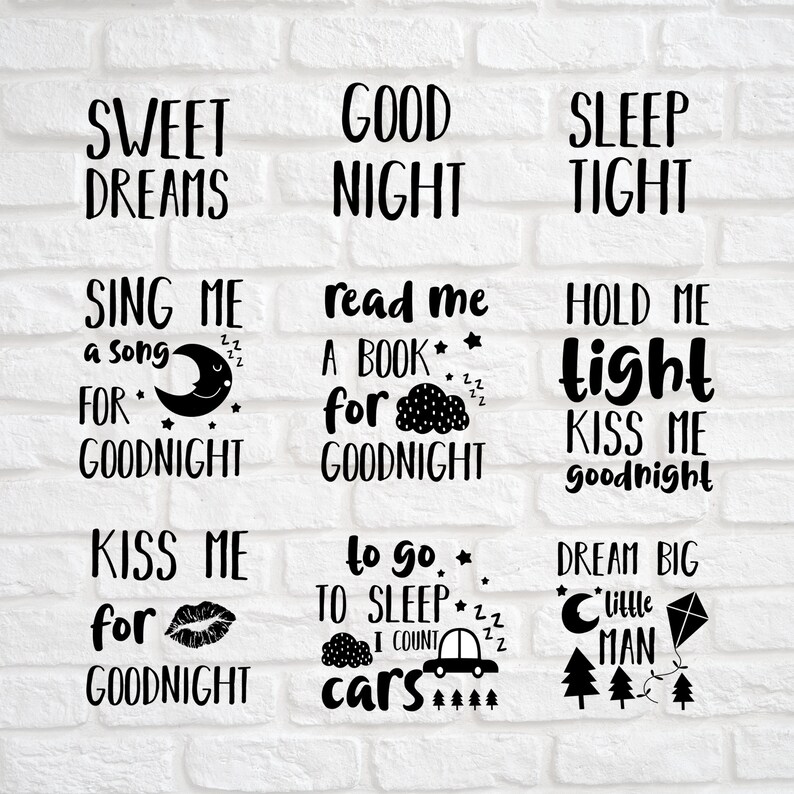 SWEET
DREAMS
GOOD
NIGHT
SLEEP
TIGHT
SING ME
a song
zzz
FOR
GOODNIGHT
read me
A BOOK
zzz
for
GOODNIGHT
HOLD ME
tight
KISS ME
goodnight
KISS ME
for
GOODNIGHT
to go
TO SLEEP
zzz
I COUNT
cars
DREAM BIG
little
MAN